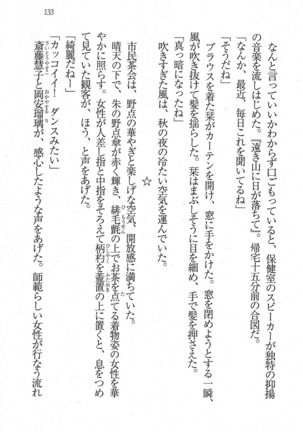 133
なんと言っていいかわからず口ごもっていると、保健室のスピーカーが独特の抑揚
の音楽を流しはじめた。『遠き山に日が落ちて』。帰宅十五分前の合図だ。
「なんか、最近、毎日これを聞いてるね」
「そうだね」
ブラウスを着た栞がカーテンを開け、窓に手をかけた。窓を閉めようとする一瞬、
風が吹き抜けて髪を揺らす。栞はまぶしそうに目を細め、手で髪を押さえた。
「真っ暗になったね」
吹きすぎた風は、秋の夜の冷たい空気を運んでいた。
☆
市民茶会は、野点の華やぎと楽しげな空気、開放感に満ちていた。
晴天の下で、朱の野点傘が赤く輝き、緋毛氈の上でお茶を点てる着物姿の女性を華
やかに照らす。女性が人差し指と中指をそろえて柄杓を蓋置の上に置くと、息をつめ
て見ていた観客が、ほう、と声をあげた。
「綺麗だね！」
「カッコイイ！　ダンスみたい」
斎藤慧子と岡安瑠璃が、感心したような声をあげた。師範らしい女性が行なう流れ